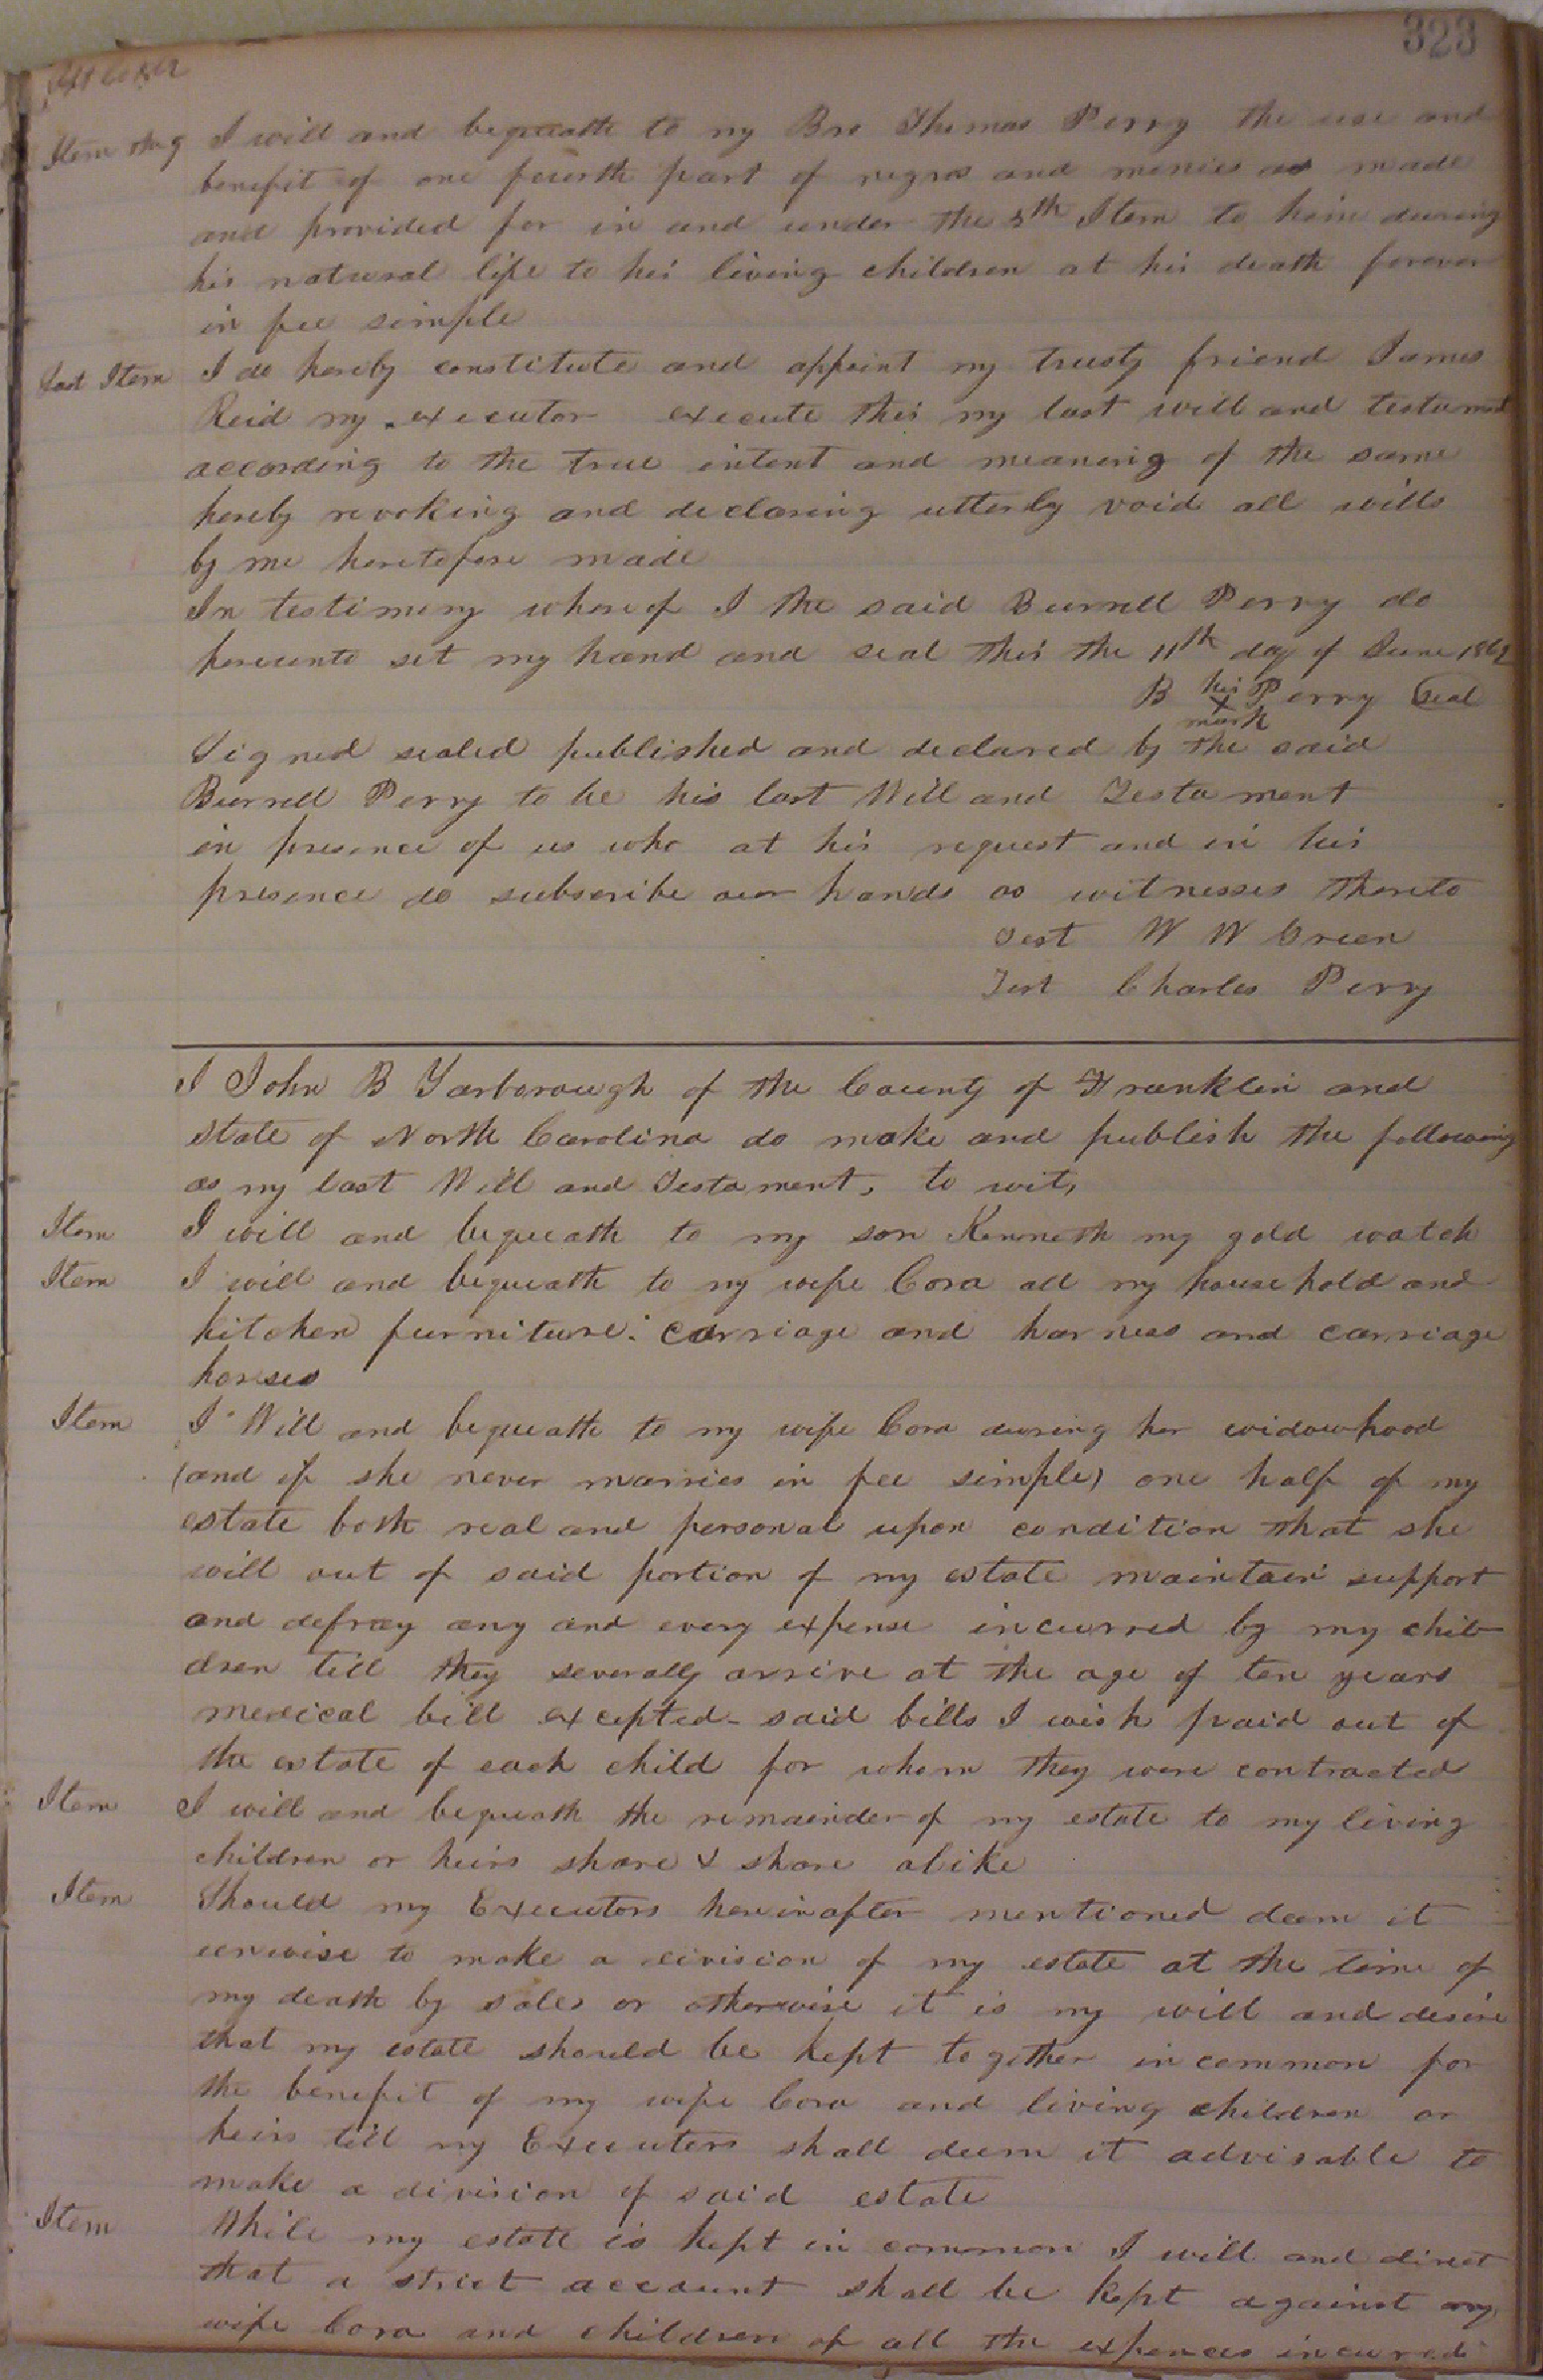 323
Item the 9 I will and bequeath to my Bro Thomas Perry the use and
benefit of one fourth part of negros and monies as made
and provided for in and under the 8th Item to him during
his natural life to his living children at his death forever
in fee simple
Last Item I do hereby constitute and appoint my trusty friend James
Reid my executor execute this my last will and testament
according to the true intent and meaning of the same
hereby revoking and declaring utterly void all wills
by me heretofore made
In testimony whereof I the said Burrell Perry do
hereunto set my hand and seal this the 11th day of June 1862
B his Perry seal
x
mark
Signed sealed published and declared by the said
Burrell Perry to be his last Will and Testament
in presence of us who at his request and in his
presence do subscribe our hands as witnesses thereto
Test W W Green
Test Charles Perry
I John B Yarborough of the County of Franklin and
State of North Carolina do make and publish the following
as my last Will and Testament, to wit,
Item I will and bequeath to my son Kenneth my gold watch
Item I will and bequeath to my wife Cora all my household and
kitchen furniture. carriage and harness and carriage
horses
Item I Will and bequeath to my wife Cora during her widowhood
(and if she never marries in fee simple) one half of my
estate both real and personal upon condition that she
will out of said portion of my estate maintain support
and defray any and every expense incurred by my chil-
dren till they severally arrive at the age of ten years
medical bill excepted - said bills I wish paid out of
the estate of each child for whom they were contracted
Item I will and bequeath the remainder of my estate to my living
children or heirs share & share alike
Item Should my Executors hereinafter mentioned deem it
unwise to make a division of my estate at the time of
my death by sales or otherwise it is my will and desire
that my estate should be kept together in common for
the benefit of my wife Cora and living children or
heirs till my Executors shall deem it advisable to
make a division of said estate
Item While my estate is kept in common I will and direct
that a strict account shall be kept against my
wife Cora and children of all the expences incurred